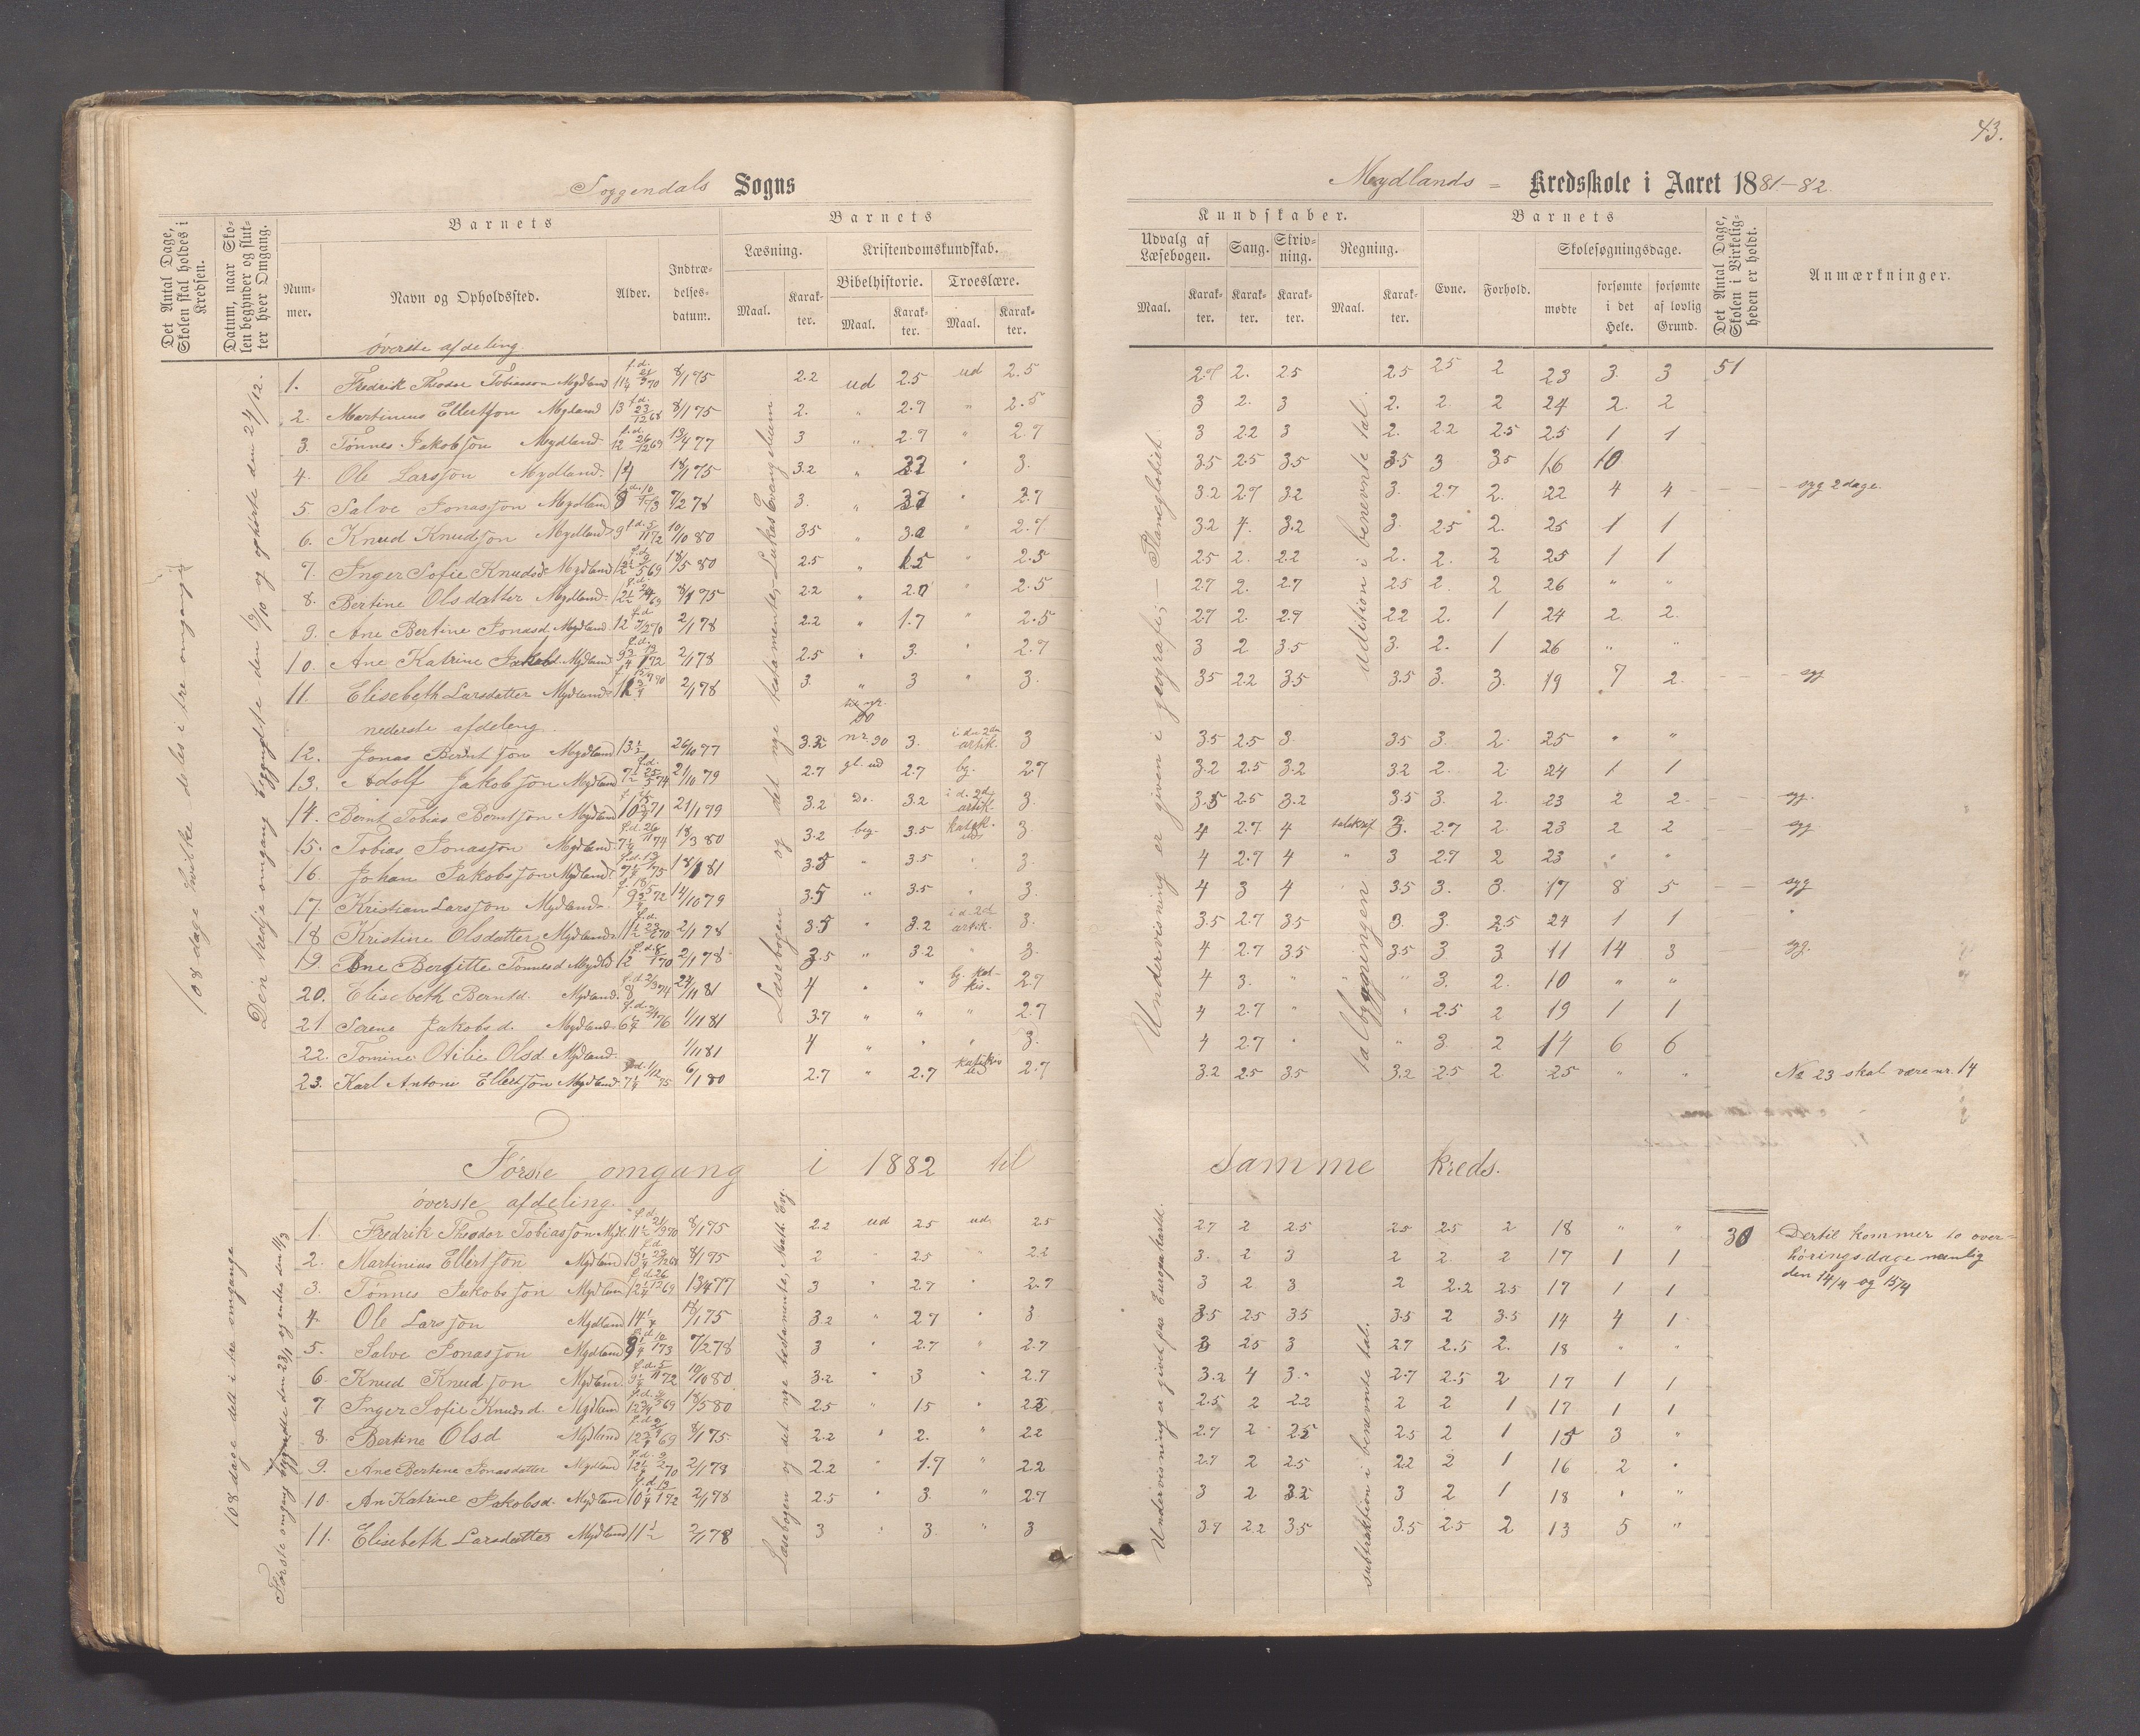 43.
Soggendals Sogns
Mydlands - Kredsskole i Aaret 1881-82.
Det Antal Dage, Skolen skal holdes i Kredsen.
Datum, naar Skolen begynder og slutter hver Omgang.
Barnets
Barnets
Kundskaber.
Barnets
Det Antal Dage, Skolen i Virkeligheden er holdt.
Anmærkninger.
Nummer.
Navn og Opholdssted.
Alder.
Indtrædelsesdatum.
Læsning.
Kristendomskundskab.
Bibelhistorie.
Troeslære.
Maal.
Karakter.
Maal.
Karakter.
Maal.
Karakter.
Udvalg af Læsebogen.
Sang.
Skrivning.
Regning.
Evne.
Forhold.
Skolesøgningsdage.
Maal.
Karakter.
Karakter.
Karakter.
Maal.
Karakter.
mødte
forsømte i det Hele.
forsømte af lovlig Grund.
108 dage hvilke deles i tre omgange
Den tredje omgang begyndte den 19/10 og ophørte den 24/12.
Læsebogen og det nye testamente, Lukas Evangelium
Undervisning er given i geografi; - Planeglobiet.
addition i benevnte tal.
øverste afdeling.
1. Fredrik Theodor Tobiasson Mydland 8/1 75 2.2 ud 2.5 ud 2.5 2.7 2. 2.5 2.5 2.5 2 23 3. 3 51
2. Martinius Ellertson Mydland 13 8/1 75 2. " 2.7 " 2.5 3 2. 3 2. 2. 2 24 2. 2
3. Tønnes Jakobson Mydland 12 13/4 77 3 " 2.7 " 2.7 3 2.2 3 2. 2.2 2.5 25 1 1
4. Ole Larsson Mydland 14 18/1 75 3.2 " " 3. 3.5 2.5 3.5 3.5 3 3.5 16 10
5. Salve Jonasson Mydland 8 7/2 78 3. " " 2.7 3.2 2.7 3.2 3. 2.7 2. 22 4 4 - syg 2 dage.
6. Knud Knudson Mydland 9 10/10 80 3.5 " " 2.7 3.2 4. 3.2 3. 2.5 2. 25 1 1
7. Inger Sofie Knudsd. Mydland 18/5 80 2.5 " 1.5 " 2.5 2.5 2. 2.2 2. 2. 2 25 1 1
8. Bertine Olsdatter Mydland 8/1 75 2.2 " 2.0 " 2.5 2.7 2. 2.7 2.5 2. 2 26 " "
9. Ane Bertine Jonasd. Mydland 12 2/1 78 2.2 " 1.7 " 2.5 2.7 2. 2.7 2.2 2. 1 24 2 2.
10. Ane Katrine Jakobd. Mydland 2/1 78 2.5 " 3. " 2.7 3 2 3.5 3. 2. 1 26 " "
11. Elisebeth Larsdatter Mydland 2/1 78 3. " 3 " 3. 3.5 2.2 3.5 3.5 3. 3. 19 7 2. - syg
nederste afdeling.
talbygningen
12. Jonas Berntson Mydland 13 1/2 26/10 77 nr. 90 3. i den 2den artik. 3 3.5 2.5 3 3.5 3. 2. 25 " "
13. Adolf Jakobson Mydland 21/10 79 2.7 gl. ud 2.7 bg. 2.7 3.2 2.5 3.2 3.2 2. 2. 24 1 1
14. Bernt Tobias Berntson Mydland 21/1 79 3.2 Do. 3.2 i d. 2d artik. 3. 3.5 2.5 3.2 3.5 3. 2. 23 2 2. - syg.
15. Tobias Jonasson Mydland 18/3 80 3.2 beg. 3.5 3. 4 2.7 4 3. 2.7 2. 23 2 2 syg
16. Johan Jakobsson Mydland 18/1 81 3.5 " 3.5 " 3. 4 2.7 4 " 3 2.7 2 23 " "
17. Kristian Larsson Mydland 14/10 79 3.5 " 3.5 " 3. 4 3 4 3.5 3. 3. 17 8 5 - syg
18 Kristine Olsdatter Mydland 2/1 78 3.5 " 3.2 i d. 2d artik. 3. 3.5 2.7 3.5 3. 3. 2.5 24 1 1 "
19. Ane Bergitte Tønnesd Mydld 2/1 78 3.5 " 3.2 " 3. 4 2.7 3.5 3.5 3 3. 11 14 3 - syg.
20. Elisebeth Berntd. Mydland 8 4 " " 2.7 4 3. " " 3. 2. 10 " "
21 Serene Jakobsd. Mydland 1/11 81 3.7 " " " 2.7 4 2.7 " " 2.5 2 19 1 1
22. Tomine Otilie Olsd Mydland 1/11 81 4 " " " 3. 4 2.7 " " 3. 2 14 6 6
23. Karl Antoni Ellertson Mydland 6/1 80 2.7 " 2.7 2.7 3.2 2.5 3.5 3.2 2.5 2 25 " " No 23 skal være nr. 14
Første omgang i 1882 til samme kreds.
108 dage delt i tre omgange
Første omgang begyndte den 23/1 og endte den 11/3
Læsebogen og det nye testamente, Math. Evg.
Undervisning er givet paa Europakartet.
subtraktion i benevnte tal.
øverste afdeling.
1. Fredrik Theodor Tobiasson Myd. 11 1/2 8/1 75 2.2 ud 2.5 ud. 2.5 2.7 2 2.5 2.5 2.5 2 18 " " 30 Dertil kommer to overhøringsdage nemlig den 14/4 og 15/4
2. Martinius Ellertson Mydland 8/1 75 2 " 2.5 " 2.2 3. 2 3 2 2 2 17 1 1
3. Tønnes Jakobsson Mydland 13/4 77 3 " 2.7 " 2.7 3 2 3 2 2.2 2.5 17 1 1
4. Ole Larsson Mydland 14 1/4 18/1 75 3.2 " 2.7 " 3 3.5 2.5 3.5 3.5 2 3.5 14 4 1
5. Salve Jonasson Mydland 7/2 78 3 " 2.7 " 2.7 3 2.5 3 2.7 2.5 2. 18 " "
6. Knud Knudson Mydland 10/10 80 3.2 " 3 " 2.7 3.2 4 3. 2.7 2.5 2 17 1 1
7 Inger Sofie Knudsd. Mydland 18/5 80 2.5 " 1.5 " 2.5 2 2.2 2 2 1 17 1 1
8. Bertine Olsd Mydland 8/1 75 2.2 " 2. " 2.2 2.7 2 2.5 2.5 2 1 15 3 "
9. Ane Bertine Jonasdatter Mydland 2/1 78 2.2 " 1.7 " 2.2 2.7 2 2.5 2.2 2 1 16 2 "
10. An Katrine Jakobsd. Mydland 2/1 78 2.5 " 3. " 2.7 3 2 3.2 3 2 1 18 " "
11. Elisebeth Larsdatter Mydland 11 1/2 2/1 78 3 " 3. " 3 3.7 2.2 3.5 3.5 2.5 2 13 5 "